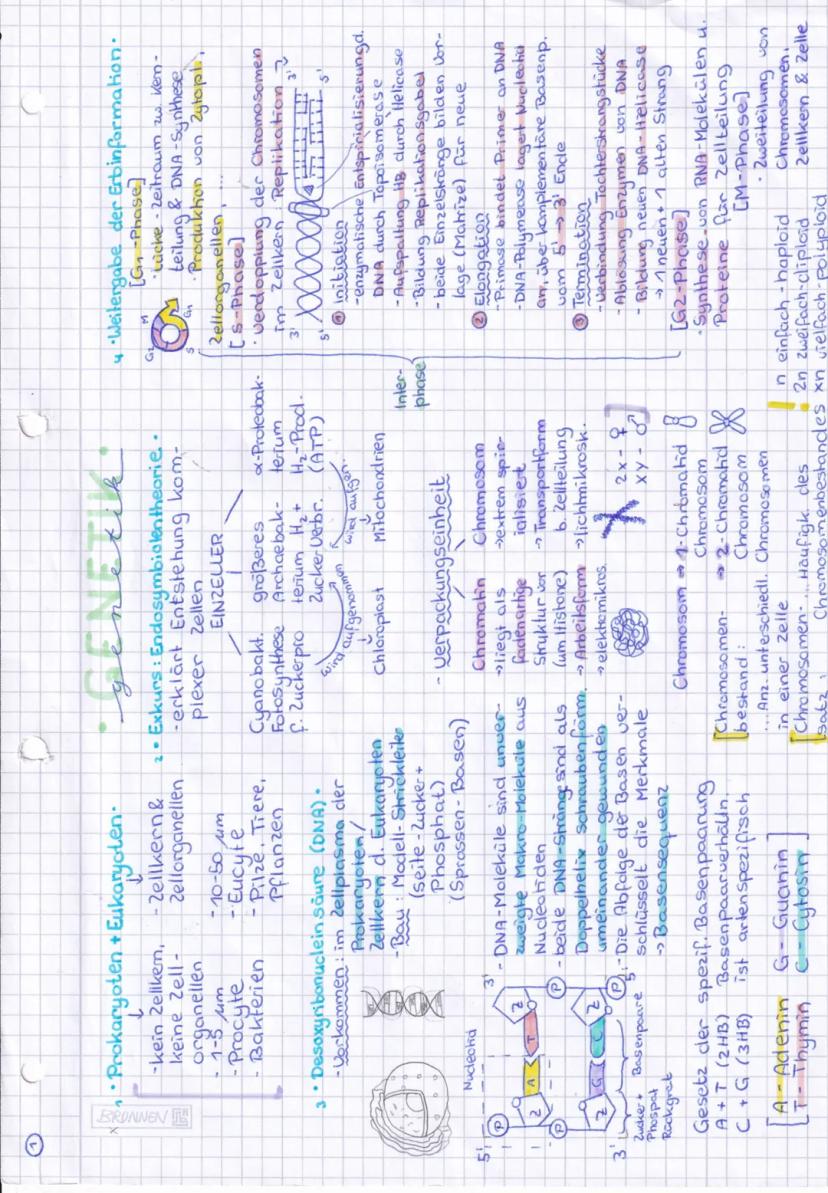 1
BRUNNEN
• GENETIK •
genetik
1 • Prokaryoten + Eukaryoten •
- kein Zellkern,
keine Zell-
organellen
- 1-5 µm
- Procyte
- Bakterien
- Zellkern &
Zellorganellen
- 10-50 µm
- Eucyte
- Pilze, Tiere,
Pflanzen
2 • Exkurs: Endosymbiontentheorie •
- erklärt Entstehung kom-
plexer Zellen
EINZELLER
Cyanobakt.
Fotosynthese
f. Zuckerpro
größeres
Archaebak-
terium H₂ +
Zucker Verbr.
α-Proteobak-
terium
H₂-Prod.
(ATP)
wird aufgenommen
wird aufgen.
Chloroplast
Mitochondrien
3 • Desoxyribonucleinsäure (DNA) •
- Vorkommen: im Zellplasma der
Prokaryoten/
Zellkern d. Eukaryoten
- Bau: Modell-Strickleiter
(seite-Zucker+
Phosphat)
(Sprossen-Basen)
Nucleotid
5'
3'
P
P
Z
A
T
Z
P
P
Z
G
C
Z
3'
5'
Zucker +
Phospat
Rückgrat
Basenpaare
- DNA-Moleküle sind unver-
zweigte Makro-Moleküle aus
Nucleotiden
- beide DNA-Stränge sind als
Doppelhelix schraubenförm.
umeinander gewunden
- Die Abfolge der Basen ver-
schlüsselt die Merkmale
→ Basensequenz
Gesetz der spezif. Basenpaarung
A + T (2HB) Basenpaarverhältn.
C + G (3HB) ist artenspezifisch
[A - Adenin G - Guanin
T - Thymin C - Cytosin]
- Verpackungseinheit
Chromatin
→ liegt als
fadenartige
Struktur vor
(um Histone)
→ Arbeitsform
→ elektromikros.
Chromosom
→ extrem spir-
ialisiert
→ Transportform
b. Zellteilung
→ lichtmikrosk.
2x - ♀
xy - ♂
Chromosom → 1-Chromatid
Chromosom
→ 2-Chromatid
Chromosom
[Chromosomen-
bestand:
... Anz. unterschiedl. Chromosomen
in einer Zelle
[Chromosomen-
satz:
... Häufigk. des
Chromosomenbestandes
! n einfach-haploid
2n zweifach-diploid
xn vielfach-polyploid
4 • Weitergabe der Erbinformation •
M
G1
S
G2
[G1-Phase]
• Lücke - Zeitraum zw. Kern-
teilung & DNA-Synthese
• Produktion von Zytopl.,
Zellorganellen, ...
[S-Phase]
• Verdopplung der Chromosomen
im Zellkern Replikation
3'
5'
3'
5'
1 Initiation
- enzymatische Entspiralisierung d.
DNA durch Topoisomerase
- Aufspaltung HB durch Helicase
- Bildung Replikationsgabel
- beide Einzelstränge bilden Vor-
lage (Matrize) für neue
2 Elongation
- Primase bindet Primer an DNA
- DNA-Polymerase lagert Nucleotid
an, über komplementäre Basenp.
vom 5' → 3' Ende
3 Termination
- Verbindung Tochterstrangstücke
- Ablösung Enzymen von DNA
- Bildung neuen DNA-Helicase
→ 1 neuen + 1 alten Strang
Inter-
phase
[G2-Phase]
• Synthese von RNA-Molekülen u.
Proteine für Zellteilung
[M-Phase]
• Zweiteilung von
Chromosomen,
Zellkern & Zelle